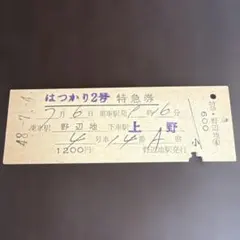 はつかり2号 特急券
7月6日 乗車駅発 9時16分
乗車駅 野辺地 下車駅 上野
4号車 14番A席
1200円 野辺地駅発行
48.-7.-4
009